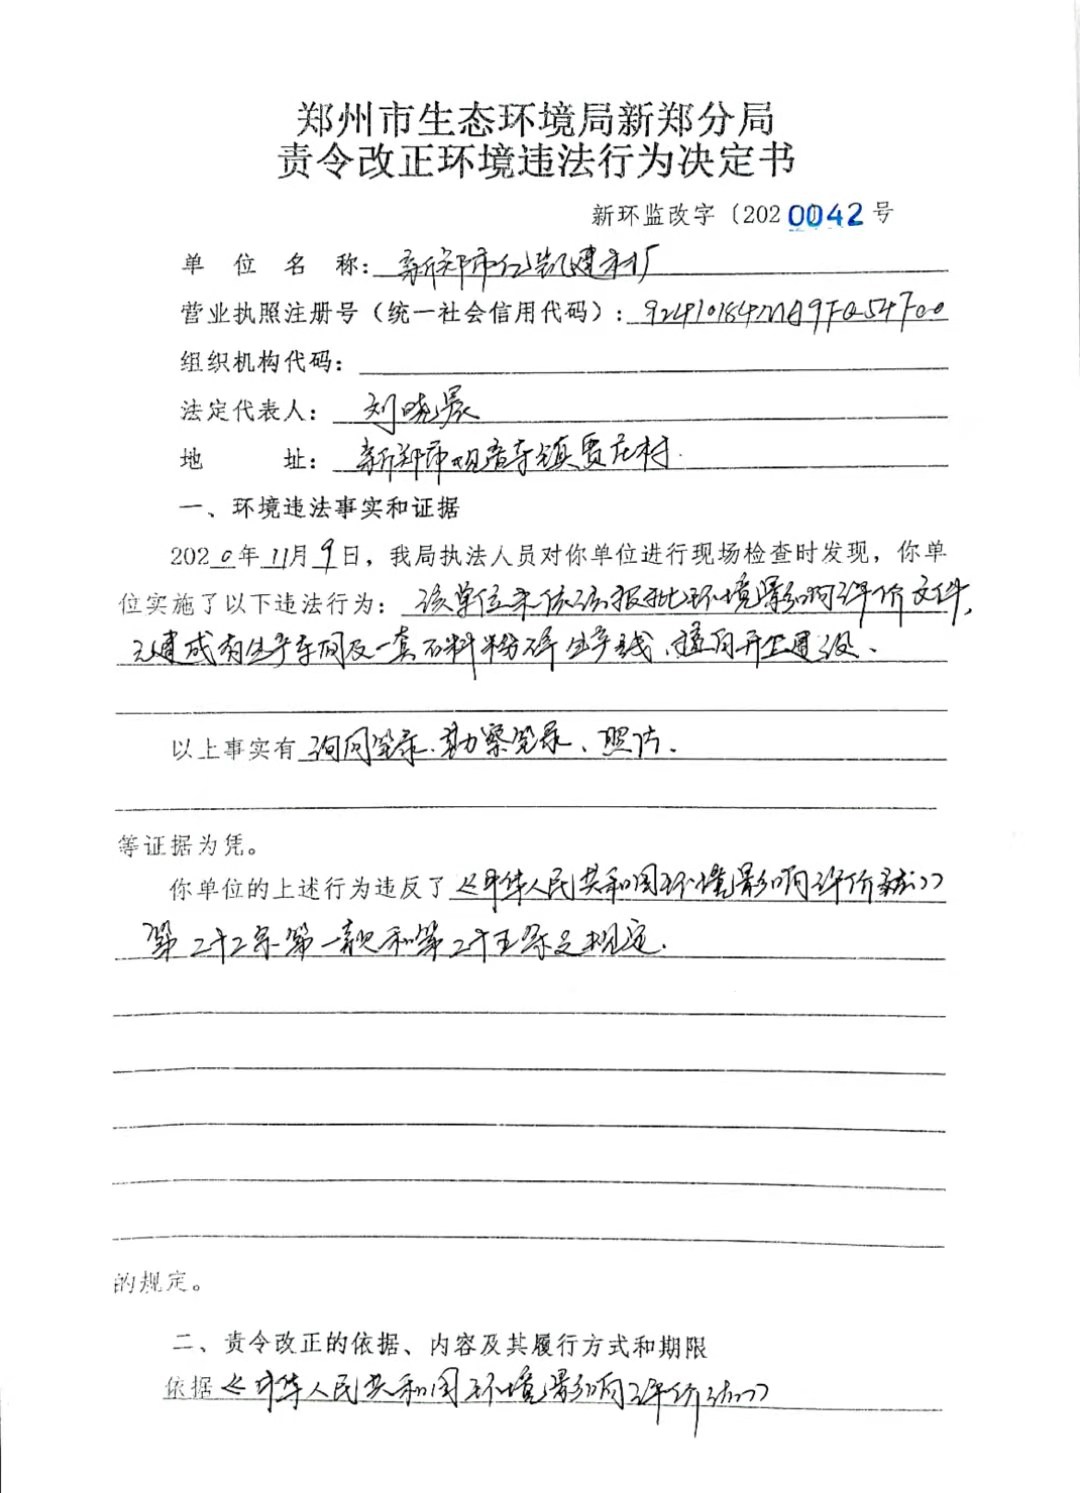 郑州市生态环境局新郑分局
责令改正环境违法行为决定书
新环监改字〔2020042号
单位名称：新郑市仁凯建材厂
营业执照注册号（统一社会信用代码）：92410184MA9FQ54F00
组织机构代码：
法定代表人：刘晓景
地址：新郑市观音寺镇贾庄村.
一、环境违法事实和证据
2020年11月9日，我局执法人员对你单位进行现场检查时发现，你单
位实施了以下违法行为：该单位未依法报批环境影响评价文件，
已建成有生产车间及一套石料粉碎生产线、擅自开工建设、
以上事实有询问笔录、勘察笔录、照片、
等证据为凭。
你单位的上述行为违反了《中华人民共和国环境影响评价法》
第二十二条第一款和第二十五条之规定.
的规定。
二、责令改正的依据、内容及其履行方式和期限
依据《中华人民共和国环境影响评价法》